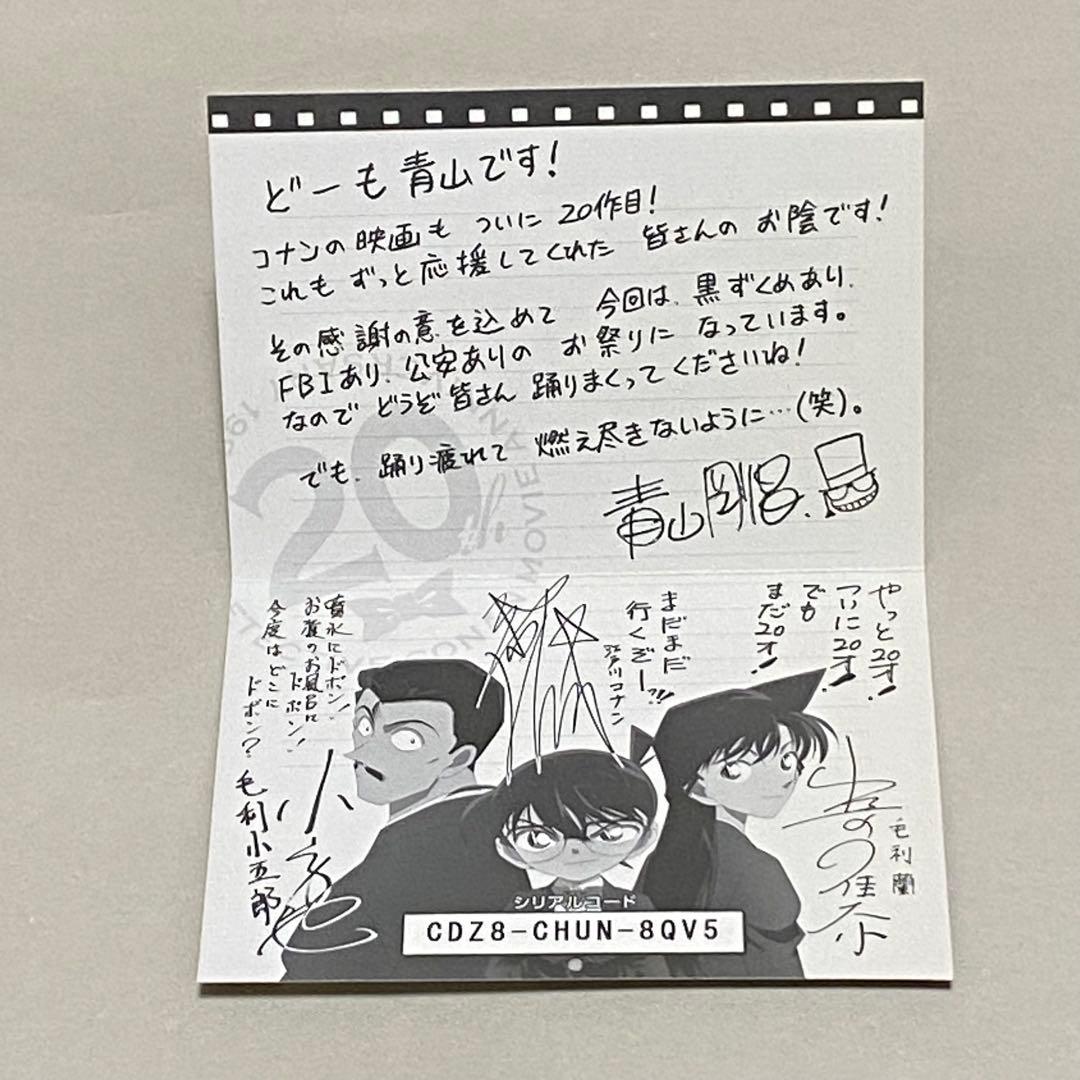 どーも青山です!
コナンの映画も ついに 20作目!
これも ずっと応援してくれた 皆さんの お陰です!
その感謝の意を込めて 今回は、黒ずくめあり、
FBIあり、公安ありの お祭りに なっています。
なので どうぞ皆さん 踊りまくってくださいね!
でも、踊り疲れて 燃え尽きないように…(笑)。
青山剛昌
やっと20才!
ついに20才!
でも
まだ20才!
毛利 蘭
まだまだ
行くぞーっ!!
江戸川コナン
噴水にドボン!
お寺のお風呂に
ドボン!
今度はどこに
ドボン?
毛利小五郎
20
MOVIE
シリアルコード
CDZ8-CHUN-8QV5